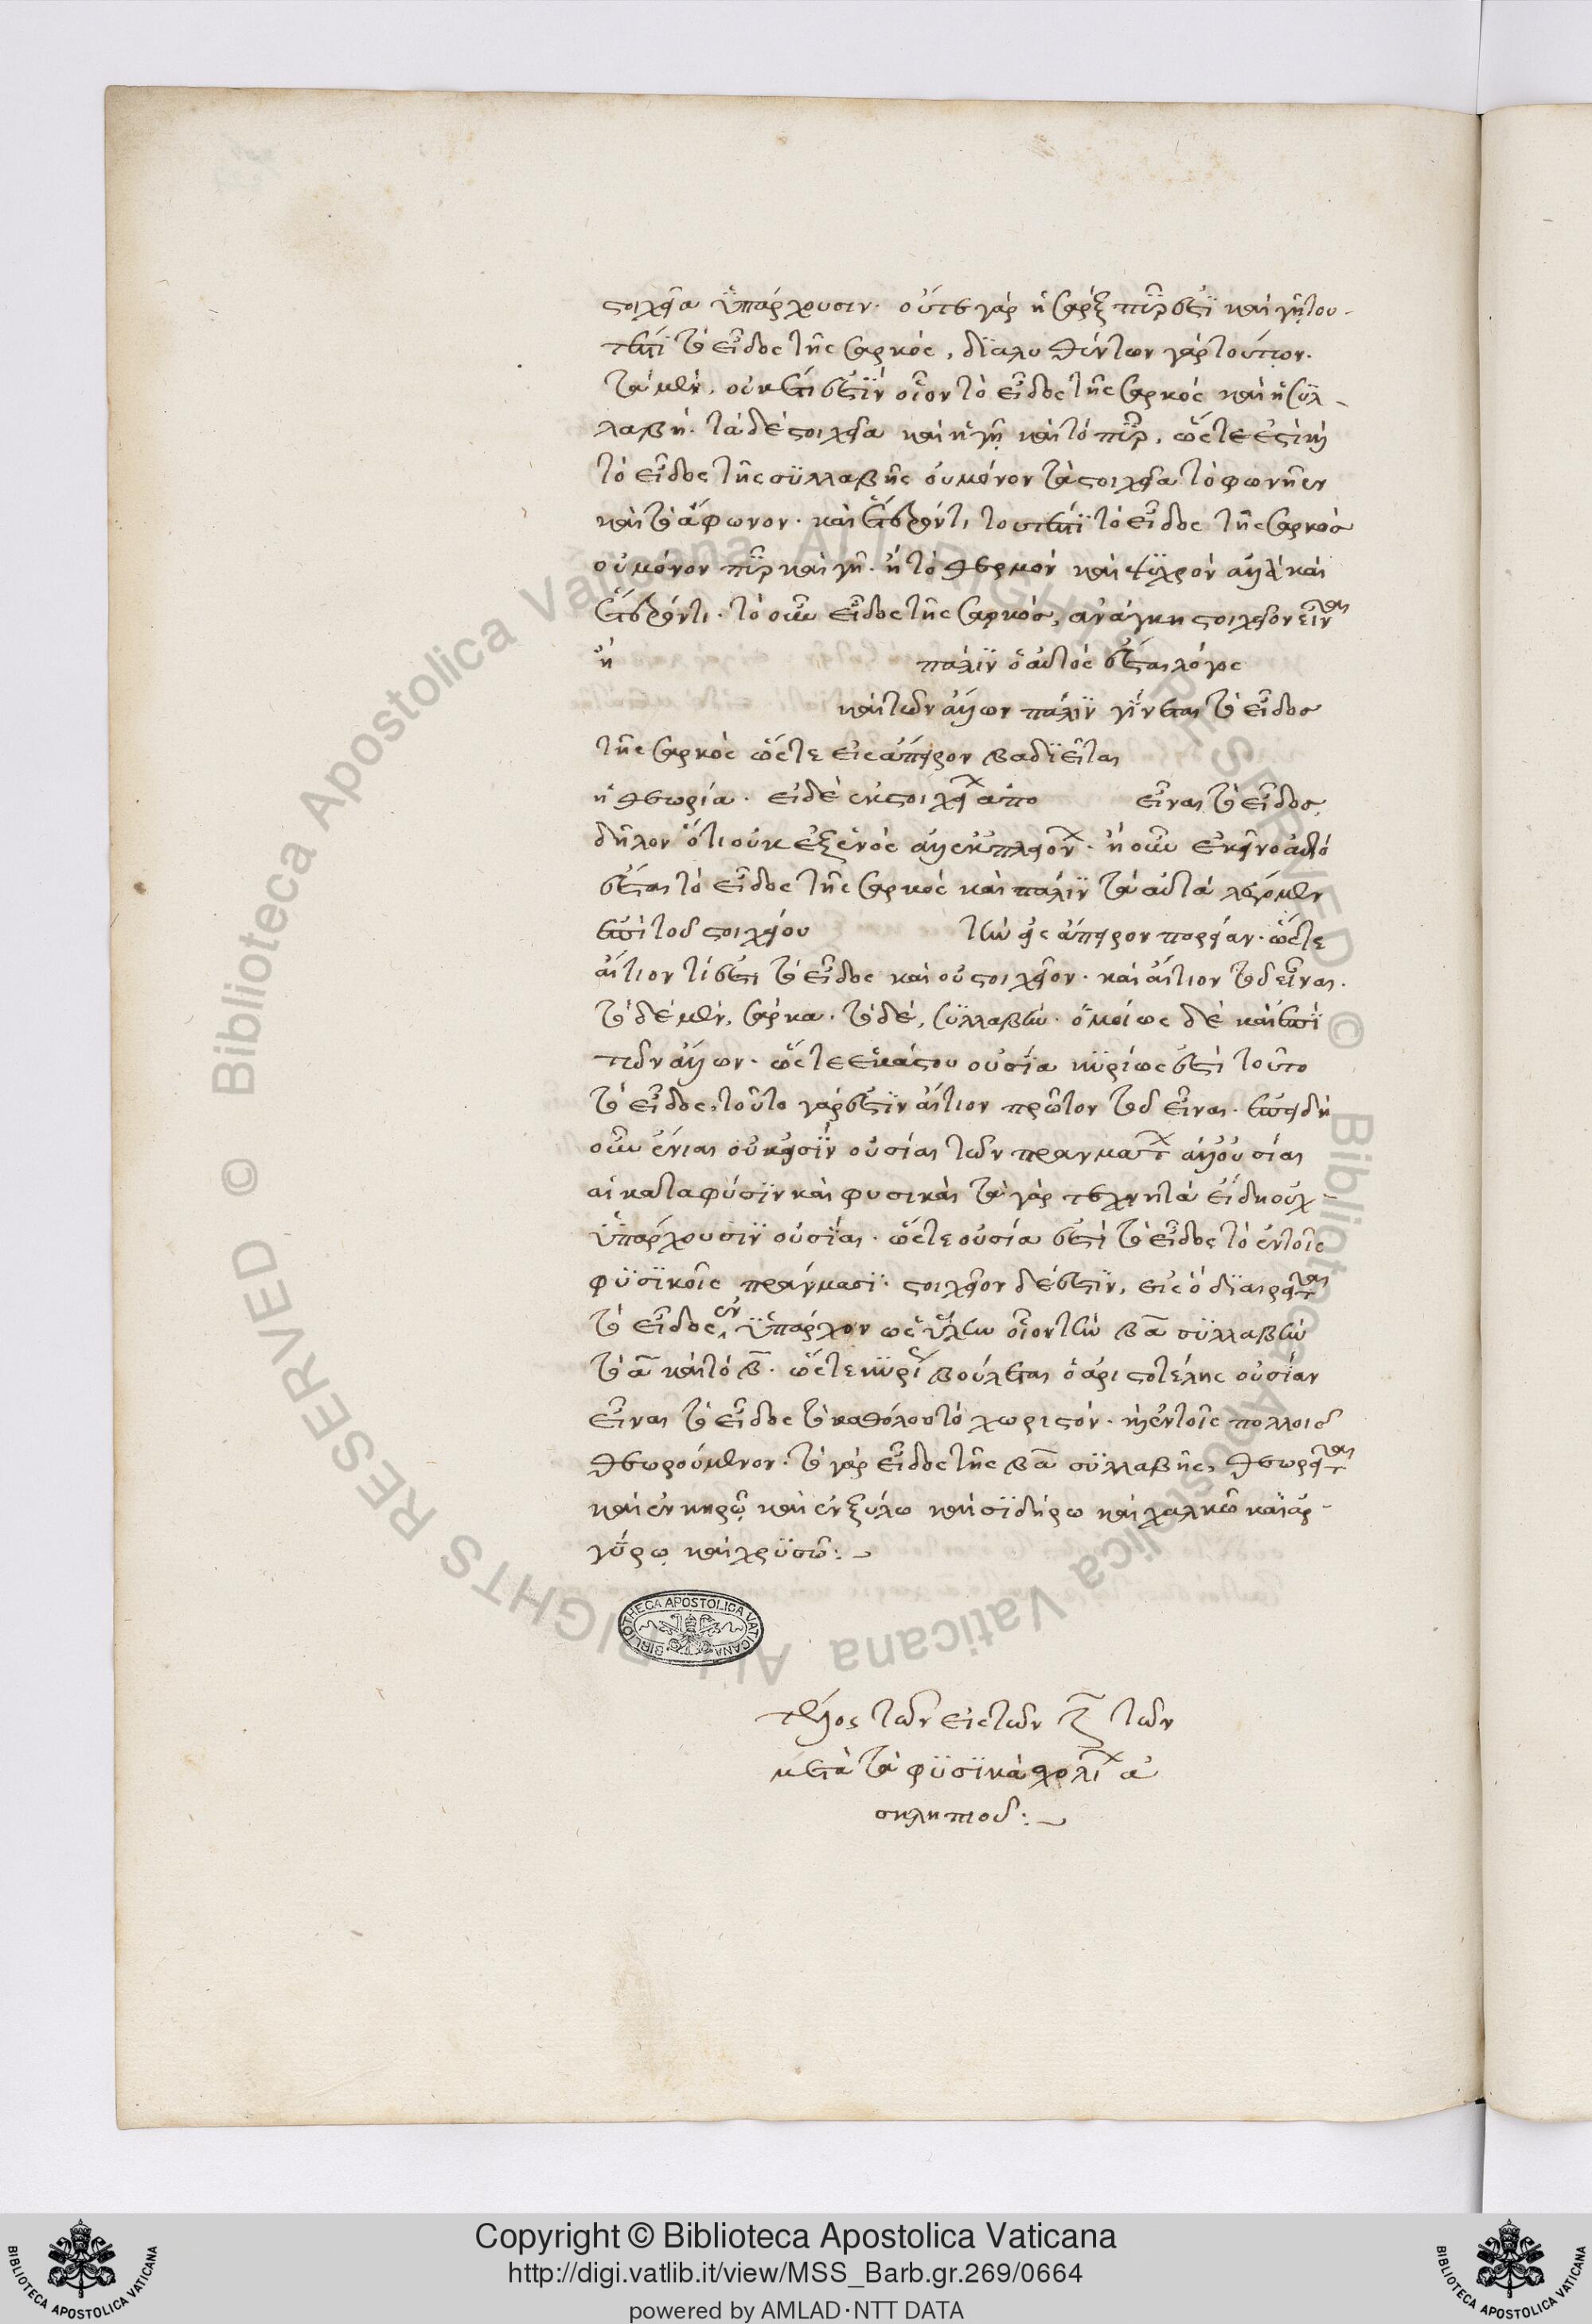 στοιχεῖα ὑπάρχουσιν· οὔτε γάρ ἡ σάρξ πῦρ ἐστϊ καὶ γῆ του-
τέστι τὸ εἶδος τῆς σαρκός, διαλυθέντων γάρ τούτων.
τὰ μὲν, οὐκέτι ἐστϊν οἷον τὸ εἶδος τῆς σαρκός καὶ ἡ συλ-
λαβή. τὰ δὲ στοιχεῖα καὶ ἡ γῆ καὶ τὸ πῦρ, ὥστε ἐστὶ καὶ
τὸ εἶδος τῆς συλλαβῆς οὐ μόνον τὰ στοιχεῖα τὸ φωνῆεν
καὶ τὸ ἄφωνον. καὶ ἕτερόν τι, τουτέστι τὸ εἶδος τῆς σαρκός
οὐ μόνον πῦρ καὶ γῆ. ἢ τὸ θερμὸν καὶ ψυχρὸν ἀλλὰ καὶ
ἕτερόν τι. τὸ οὖν εἶδος τῆς σαρκός, ἀνάγκη στοιχεῖον εἶναι
ἢ πάλιν ὁ αὐτὸς ἔσται λόγος
καὶ τῶν ἄλλων πάλιν γίνεται τὸ εἶδος
τῆς σαρκὸς ὥστε εἰς ἄπειρον βαδιεῖται
ἡ θεωρία. εἰ δὲ ἐκ στοιχεῖ ἀπο εἶναι τὸ εἶδος,
δῆλον ὅτι οὐκ ἐξ ἑνὸς ἀλλ' ἐκ πλειόν. ἢ οὖν ἐκεῖνο αὐτό
ἔσται τὸ εἶδος τῆς σαρκός καὶ πάλιν τὰ αὐτὰ λέγομεν
ἐπὶ τοῦ στοιχείου τὴν εἰς ἄπειρον πορείαν. ὥστε
αἴτιον τί ἐστι τὸ εἶδος καὶ οὐ στοιχεῖον. καὶ αἴτιον τοῦ εἶναι.
τὸ δὲ μὲν, σάρκα. τὸ δὲ, συλλαβὴν. ὁμοίως δὲ καὶ ἐπὶ
τῶν ἄλλων. ὥστε ἑκάστου οὐσία κυρίως ἐστὶ τοῦτο
τὸ εἶδος, τοῦτο γάρ ἐστιν αἴτιον πρῶτον τοῦ εἶναι. ἐπειδὴ
οὖν ἔνιαι οὐκ εἰσὶν οὐσίαι τῶν πραγματ ἀλλ' οὐσίαι
αἱ κατὰ φύσιν καὶ φυσικαὶ τὰ γὰρ τεχνητὰ εἴδη οὐχ
ὑπάρχουσιν οὐσίαι. ὥστε οὐσία ἐστὶ τὸ εἶδος τὸ ἐν τοῖς
φυσικοῖς πράγμασι. στοιχεῖον δέ ἐστιν, εἰς ὃ διαιρεῖται
τὸ εἶδος, ἐνυπάρχον ὡς ὕλην οἷον τὴν βα συλλαβὴν
τὸ α καὶ τὸ β. ὥστε κυρί βούλεται ὁ ἀριστοτέλης οὐσίαν
εἶναι τὸ εἶδος τὸ καθόλου τὸ χωριστόν. καὶ ἐν τοῖς πολλοῖς
θεωρούμενον. τὸ γὰρ εἶδος τῆς βα συλλαβῆς, θεωρεῖται
καὶ ἐν κηρῷ καὶ ἐν ξύλω καὶ σιδήρω καὶ χαλκῶ καὶ ἀρ-
γύρω καὶ χρυσῶ:
BIBLIOTHECA APOSTOLICA VATICANA
τέλος τῶν εἰς τῶν ζ τῶν
μετὰ τὰ φυσικὰ σχολι ἀ
σκληπιοῦ:
© Biblioteca Apostolica Vaticana ALL RIGHTS RESERVED © Biblioteca Apostolica Vaticana ALL RIGHTS RESERVED
Copyright © Biblioteca Apostolica Vaticana
http://digi.vatlib.it/view/MSS_Barb.gr.269/0664
powered by AMLAD·NTT DATA
BIBLIOTECA APOSTOLICA VATICANA
BIBLIOTECA APOSTOLICA VATICANA